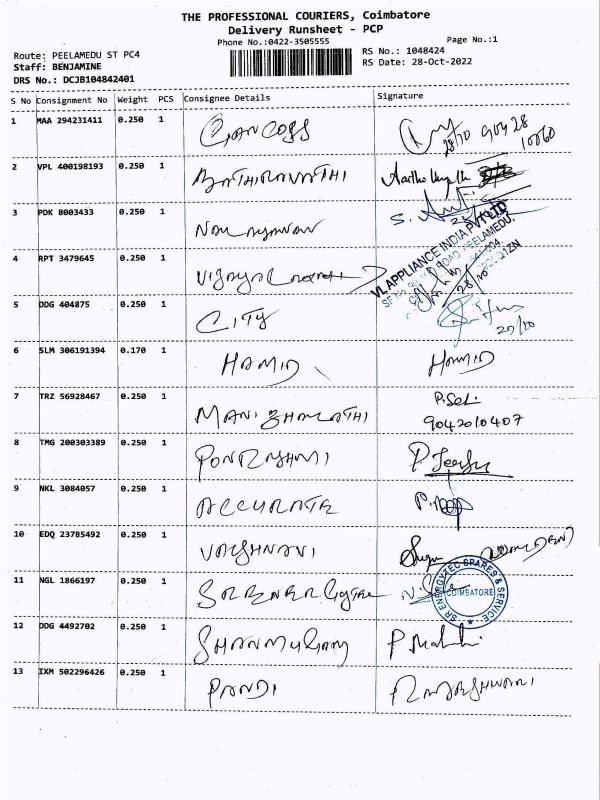 THE PROFESSIONAL COURIERS, Coimbatore
Delivery Runsheet - PCP
Phone No.:0422-3505555
Page No.:1
Route: PEELAMEDU ST PC4
RS No.: 1048424
Staff: BENJAMINE
RS Date: 28-Oct-2022
DRS No.: DCJB104842401
S No Consignment No Weight PCS Consignee Details Signature
1 MAA 294231411 0.250 1 28/10 90428 10060
2 VPL 400198193 0.250 1 BATHIRAVATHI
3 PDK 8003433 0.250 1 NARAYANAN S.
4 RPT 3479645 0.250 1
VI APPLIANCE INDIA PVT LTD
5 DDG 404875 0.250 1 CITY
6 SLM 306191394 0.170 1 HAMID HAMID
7 TRZ 56928467 0.250 1 MANI BHARATHI P.Sel.
9042010407
8 TMG 200303389 0.250 1 PONRAYAMI
9 NKL 3084057 0.250 1 ACCURATE
10 EDQ 23785492 0.250 1 VAISHNAVI
11 NGL 1866197 0.250 1
SR ENERGYTEC SPARES & SERVICE
COIMBATORE
12 DDG 4492702 0.250 1 SHANMUGAM
13 IXM 502296426 0.250 1 PANDI RMARSHWARI